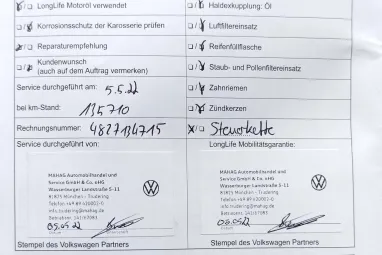 LongLife Motoröl verwendet
Haldexkupplung: Öl
Korrosionsschutz der Karosserie prüfen
Luftfiltereinsatz
Reparaturempfehlung
Reifenfüllflasche
Kundenwunsch
(auch auf dem Auftrag vermerken)
Staub- und Pollenfiltereinsatz
Service durchgeführt am: 5.5.22
Zahnriemen
bei km-Stand: 135710
Zündkerzen
Rechnungsnummer: 4827134715
Steuerkette
Service durchgeführt von:
LongLife Mobilitätsgarantie:
MAHAG Automobilhandel und
Service GmbH & Co. oHG
Wasserburger Landstraße 5-11
81825 München - Trudering
info.trudering@mahag.de
05.05.22
MAHAG Automobilhandel und
Service GmbH & Co. oHG
Wasserburger Landstraße 5-11
81825 München - Trudering
info.trudering@mahag.de
05.05.22
Stempel des Volkswagen Partners
Stempel des Volkswagen Partners